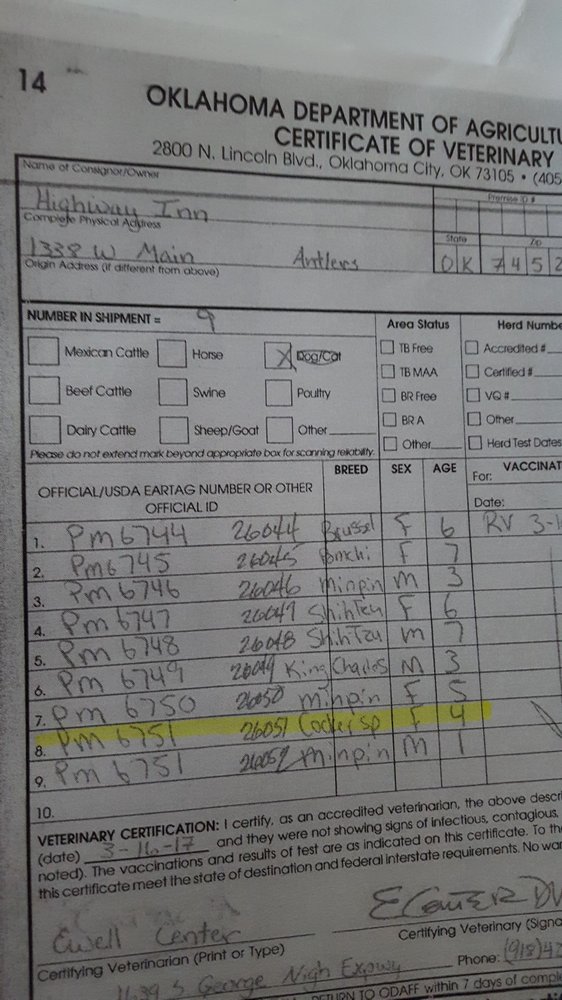 14
OKLAHOMA DEPARTMENT OF AGRICULTU
CERTIFICATE OF VETERINARY
2800 N. Lincoln Blvd., Oklahoma City, OK 73105 • (405
Name of Consignor/Owner
Premise ID #
Highway Inn
Complete Physical Address
State Zip
1338 W Main Antlers OK 7452
Origin Address (if different from above)
NUMBER IN SHIPMENT = 9
Area Status Herd Numbe
Mexican Cattle Horse X Dog/Cat TB Free Accredited #
TB MAA Certified #
Beef Cattle Swine Poultry BR Free VQ #
BR A Other
Dairy Cattle Sheep/Goat Other Other Herd Test Dates
Please do not extend mark beyond appropriate box for scanning reliability.
OFFICIAL/USDA EARTAG NUMBER OR OTHER OFFICIAL ID BREED SEX AGE VACCINAT
For:
Date:
1. Pm 6744 26044 Brussel F 6 RV 3-1
2. Pm 6745 26045 Pomchi F 7
3. Pm 6746 26046 Minpin m 3
4. Pm 6747 26047 ShihTzu F 6
5. Pm 6748 26048 ShihTzu m 7
6. Pm 6749 26049 King Charles M 3
7. Pm 6750 26050 minpin F 5
8. Pm 6751 26051 Cockersp F 4
9. Pm 6751 26052 Minpin M 1
10.
VETERINARY CERTIFICATION: I certify, as an accredited veterinarian, the above descri
(date) 3-16-17 and they were not showing signs of infectious, contagious,
noted). The vaccinations and results of test are as indicated on this certificate. To the
this certificate meet the state of destination and federal interstate requirements. No war
Ewell Center
Certifying Veterinarian (Print or Type)
E Center DV
Certifying Veterinary (Signa
Phone: (918)42
1639 S George Nigh Expwy
RETURN TO ODAFF within 7 days of comple